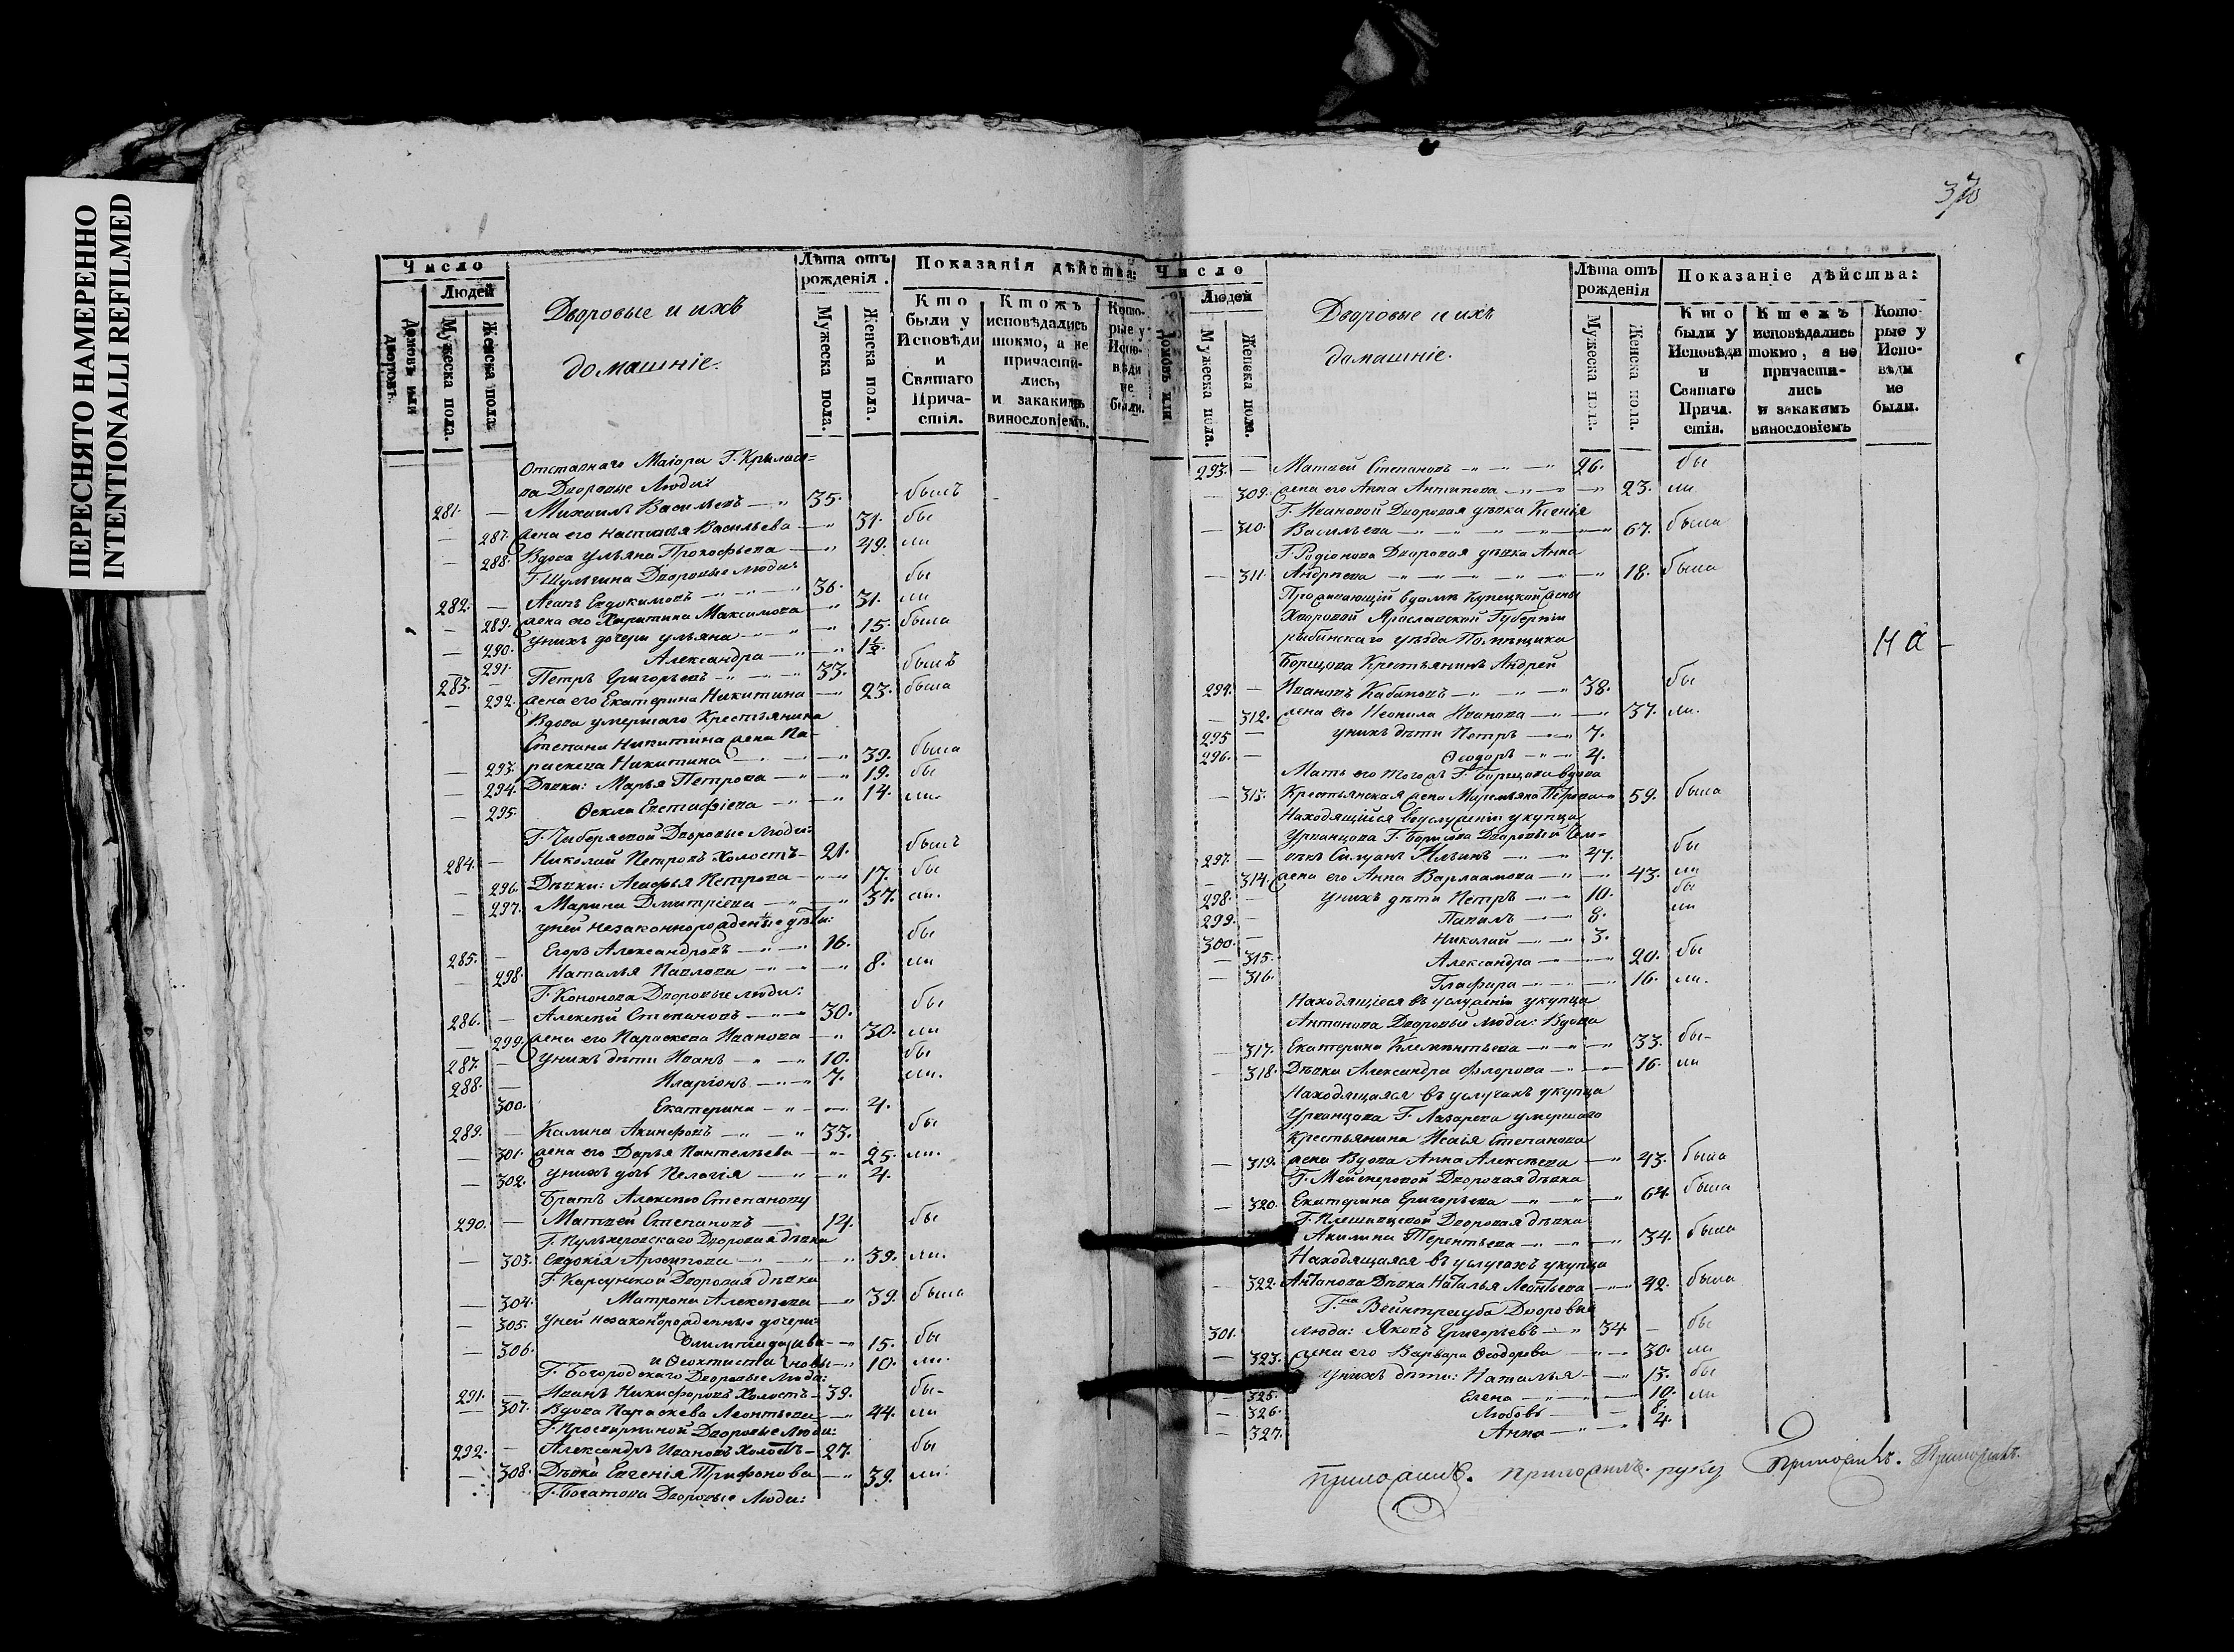 ПЕРЕСНЯТО НАМЕРЕННО
INTENTIONALLI REFILMED
Число
Людей
Домовъ или дворовъ.
Мужеска пола.
Женска пола.
Дворовые и ихъ
домашніе.
Лѣта отъ рожденія.
Мужеска пола.
Женска пола.
Показанія дѣйства:
Кто были у Исповѣди и Святаго Прича-стія.
Ктожъ исповѣдались токмо, а не причасти-лись, и закакимъ винословіемъ.
Кото-рые у Испо-вѣди не были.
Отставнаго Маіора Г. Крылов=
ва Дворовые Люди:
281. — Михаилъ Васильевъ — 35. былъ
— 287. жена его Настасья Васильева — 31. бы
— 288. Вдова Ульяна Прокофьева — 49. ли
Г. Шульгина Дворовые люди
282. — Агапъ Евдокимовъ — 36. бы
— 289. жена его Харитина Максимова — 31. ли
— 290. уникъ дочери Ульяна — 15. была
— 291. Александра — 1½.
283. — Петръ Григорьевъ — 33. былъ
— 292. жена его Екатерина Никитина — 23. была
Вдова умершаго Крестьянина
Степана Никитина жена Па-
— 293. раскева Никитина — 39. была
— 294. Дѣвки: Марья Петрова — 19. бы
— 295. Ѳекла Евстафіева — 14. ли.
Дворовые Люди:
284. — Николай Петровъ Холостъ — 21. былъ
— 296. Дѣвки: Агафья Петрова — 17. бы
— 297. Марина Дмитріева — 37. ли.
уней незаконнорожденные дѣти:
285. — Егоръ Александровъ — 16. бы
— 298. Наталья Павлова — 8. ли
Г. Кононова Дворовые люди:
286. — Алексѣй Степановъ — 30. бы
— 299. жена его Параскева Иванова — 30. ли
287. — уникъ дѣти Иванъ — 10. бы
288. — Иларіонъ — 7. ли.
300. Екатерина — 4.
289. — Калина Акинфовъ — 33. бы
— 301. жена его Дарья Пантелѣева — 25. ли.
— 302. уникъ дочь Пелагія — 4.
Братъ Алексѣю Степанову
290. — Матвей Степановъ — 14. бы
Дворовая дѣвка
— 303. Евдокія Архипова — 39. ли.
Дворовая дѣвка
— 304. Матрона Алексѣева — 39. была
— 305. уней незаконнорожденные дочери:
— 306. Олимпіада Ива — 15. бы
и Ѳеоктиста новы — 10. ли.
Г. Богородскаго Дворовые Люди:
291. — Иванъ Никифоровъ Холостъ — 39. бы-
— 307. Вдова Параскева Леонтьева — 44. ли
Дворовые Люди:
292. — Александръ Ивановъ Холостъ — 27. бы
— 308. Дѣвка Евгенія Трифонова — 39. ли.
Г. Богатова Дворовые Люди:
Число
Людей
Домовъ или
Мужеска пола.
Женска пола.
Дворовые и ихъ
домашніе.
Лѣта отъ рожденія
Мужеска пола.
Женска пола.
Показаніе дѣйства:
Кто были у Исповѣди и Святаго Прича-стія.
Ктожъ исповѣдались токмо, а не причасти-лись и закакимъ винословіемъ
Кото-рые у Испо-вѣди не были.
293. — Матвей Степановъ — 26. бы
— 309. жена его Анна Антипова — 23. ли
Г. Ивановой Дворовая дѣвка Ксенія
— 310. Васильева — 67. была
Г. Родіонова Дворовая дѣвка Анна
— 311. Андреева — 18. была
Проживающій вдомѣ Купецкой жены
Хворовой Ярославской Губерніи
рыбинскаго уѣзда Помѣщика
Борщова Крестьянинъ Андрей
294. — Ивановъ Кабановъ — 38. бы
— 312. жена его Неонила Иванова — 37. ли.
295 — уникъ дѣти Петръ — 7.
296. — Ѳеодоръ — 4.
Мать его тогожъ Г. Борщова вдова
— 313. Крестьянская жена Маремьяна Петрова 59. была
Находящійся вуслуженіи укупца
Урванцова Г. Борисова Дворовый
297. — Ильинъ — 47. бы
— 314. жена его Анна Варлаамова — 43. ли
298. — уникъ дѣти Петръ — 10. бы
299. — Павилъ — 8. ли
300. — Николай — 3.
— 315. Александра — 20. бы
— 316. Глафира — 16. ли.
Находящіеся въ услуженіи укупца
Антонова Дворовые люди: Вдова
— 317. Екатерина Климентьева — 33. бы-
— 318. Дѣвка Александра Флорова — 16. ли
Находящаяся въ услугахъ укупца
Урванцова Г. Лазарева умершаго
Крестьянина Исаія Степанова
— 319. жена Вдова Анна Алексѣева — 43. была
Г. Мейснеровой Дворовая дѣвка
— 320. Екатерина Григорьева — 64. была
Г. Плешивцевой Дворовая дѣвка
Акилина Терентьева — 34. была
Находящаяся въ услугахъ укупца
— 322. Антонова Дѣвка Наталья Леонтьева — 42. была
Г.на Вейнтрауба Дворовые
301. люди: Яковъ Григорьевъ — 34 — бы
— 323. жена его Варвара Ѳеодорова — 30. ли
уникъ дѣти: Наталья — 13. бы
— 325. Елена — 10. ли
— 326. Любовь — 8.
— 327. Анна — 4.
на -
приложилъ. приложилъ. руку приложилъ. Приложилъ.